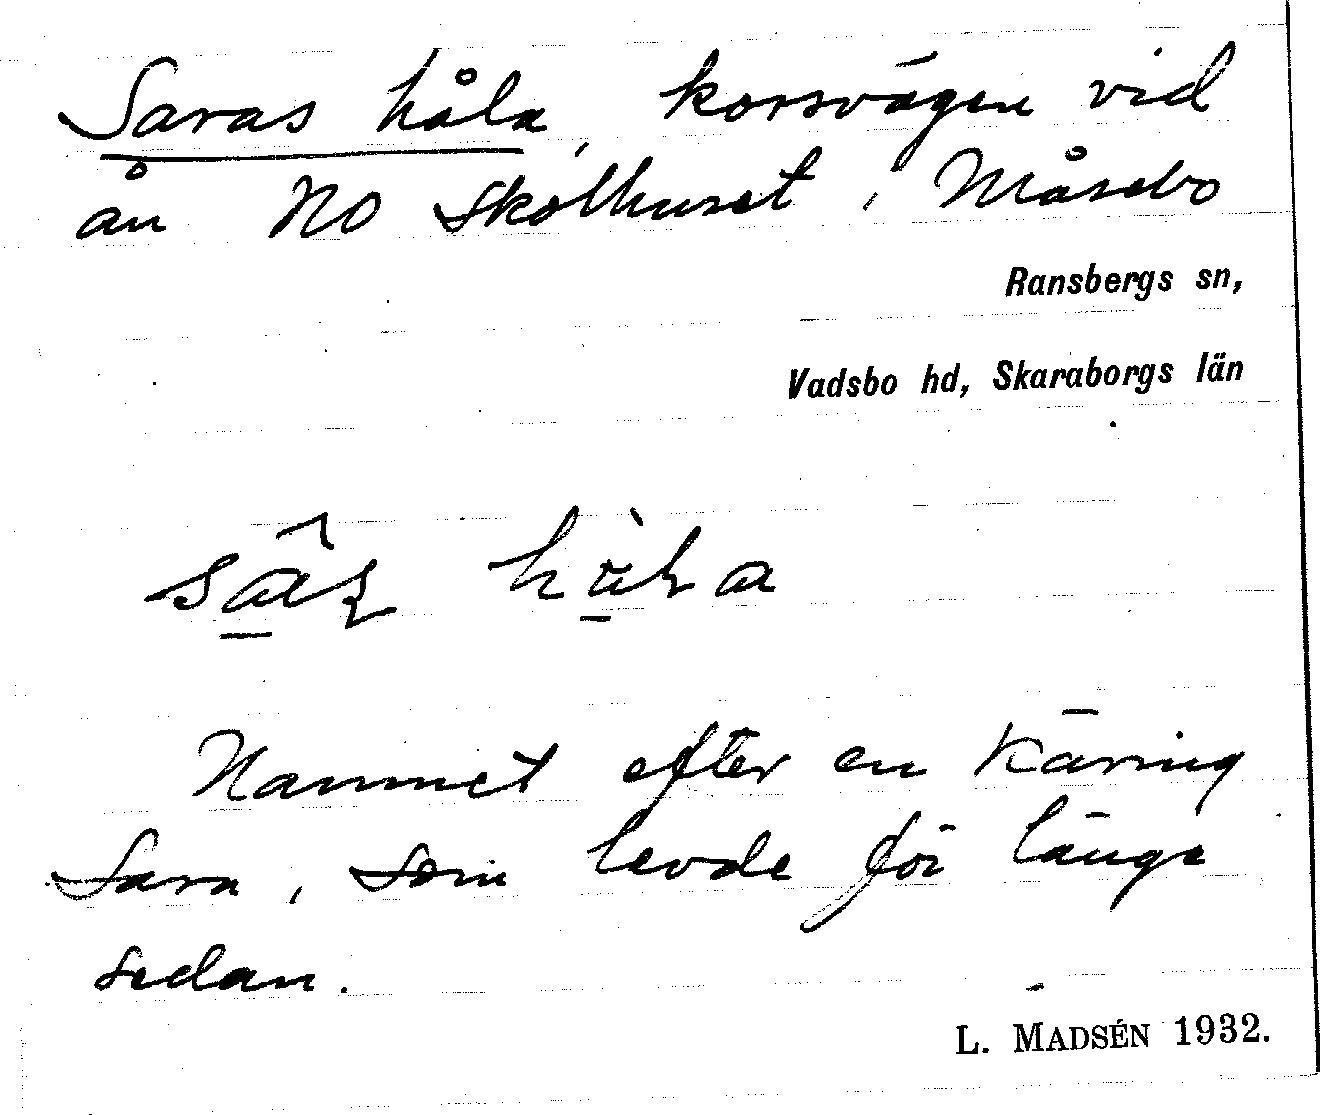 Saras håla, korsvägen vid
ån NO Skolhuset, Måsebo
Ransbergs sn,
Vadsbo hd, Skaraborgs län
Namnet efter en käring
Sara, som levde för länge
sedan.
L. MADSÉN 1932.